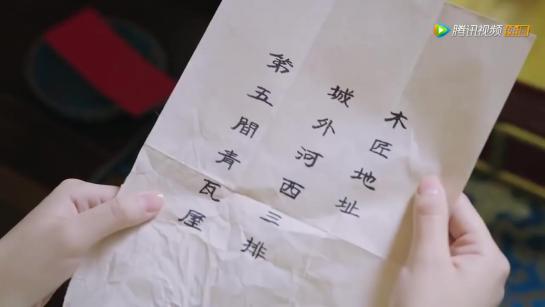 木匠地址
城外河西三排
第五間青瓦屋
腾讯视频